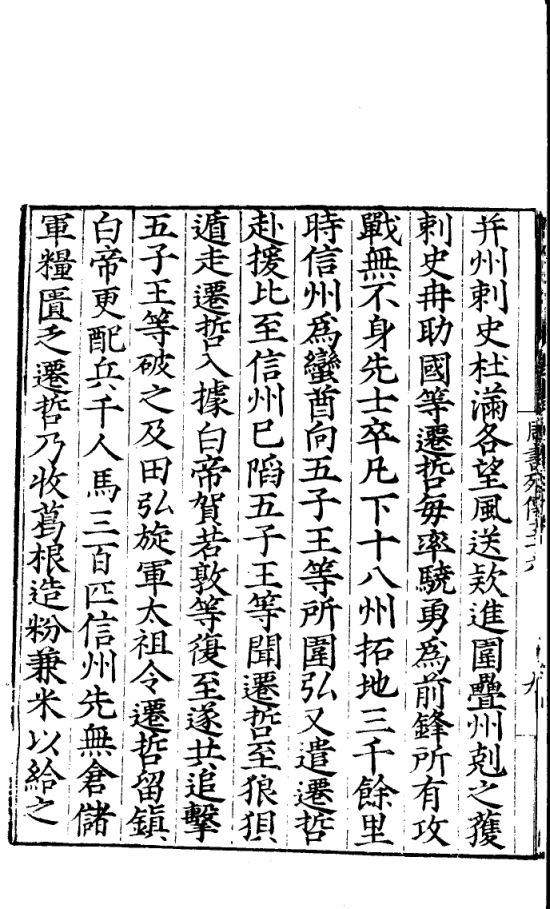 并州刺史杜滿各望風送款進圍疊州剋之獲
刺史冉助國等遷哲每率驍勇爲前鋒所有攻
戰無不身先士卒凡下十八州拓地三千餘里
時信州爲蠻酋向五子王等所圍弘又遣遷哲
赴援比至信州已䧟五子王等聞遷哲至狼狽
遁走遷哲入據白帝賀若敦等復至遂共追擊
五子王等破之及田弘旋軍太祖令遷哲留鎮
白帝更配兵千人馬三百匹信州先無倉儲
軍糧匱乏遷哲乃收葛根造粉兼米以給之